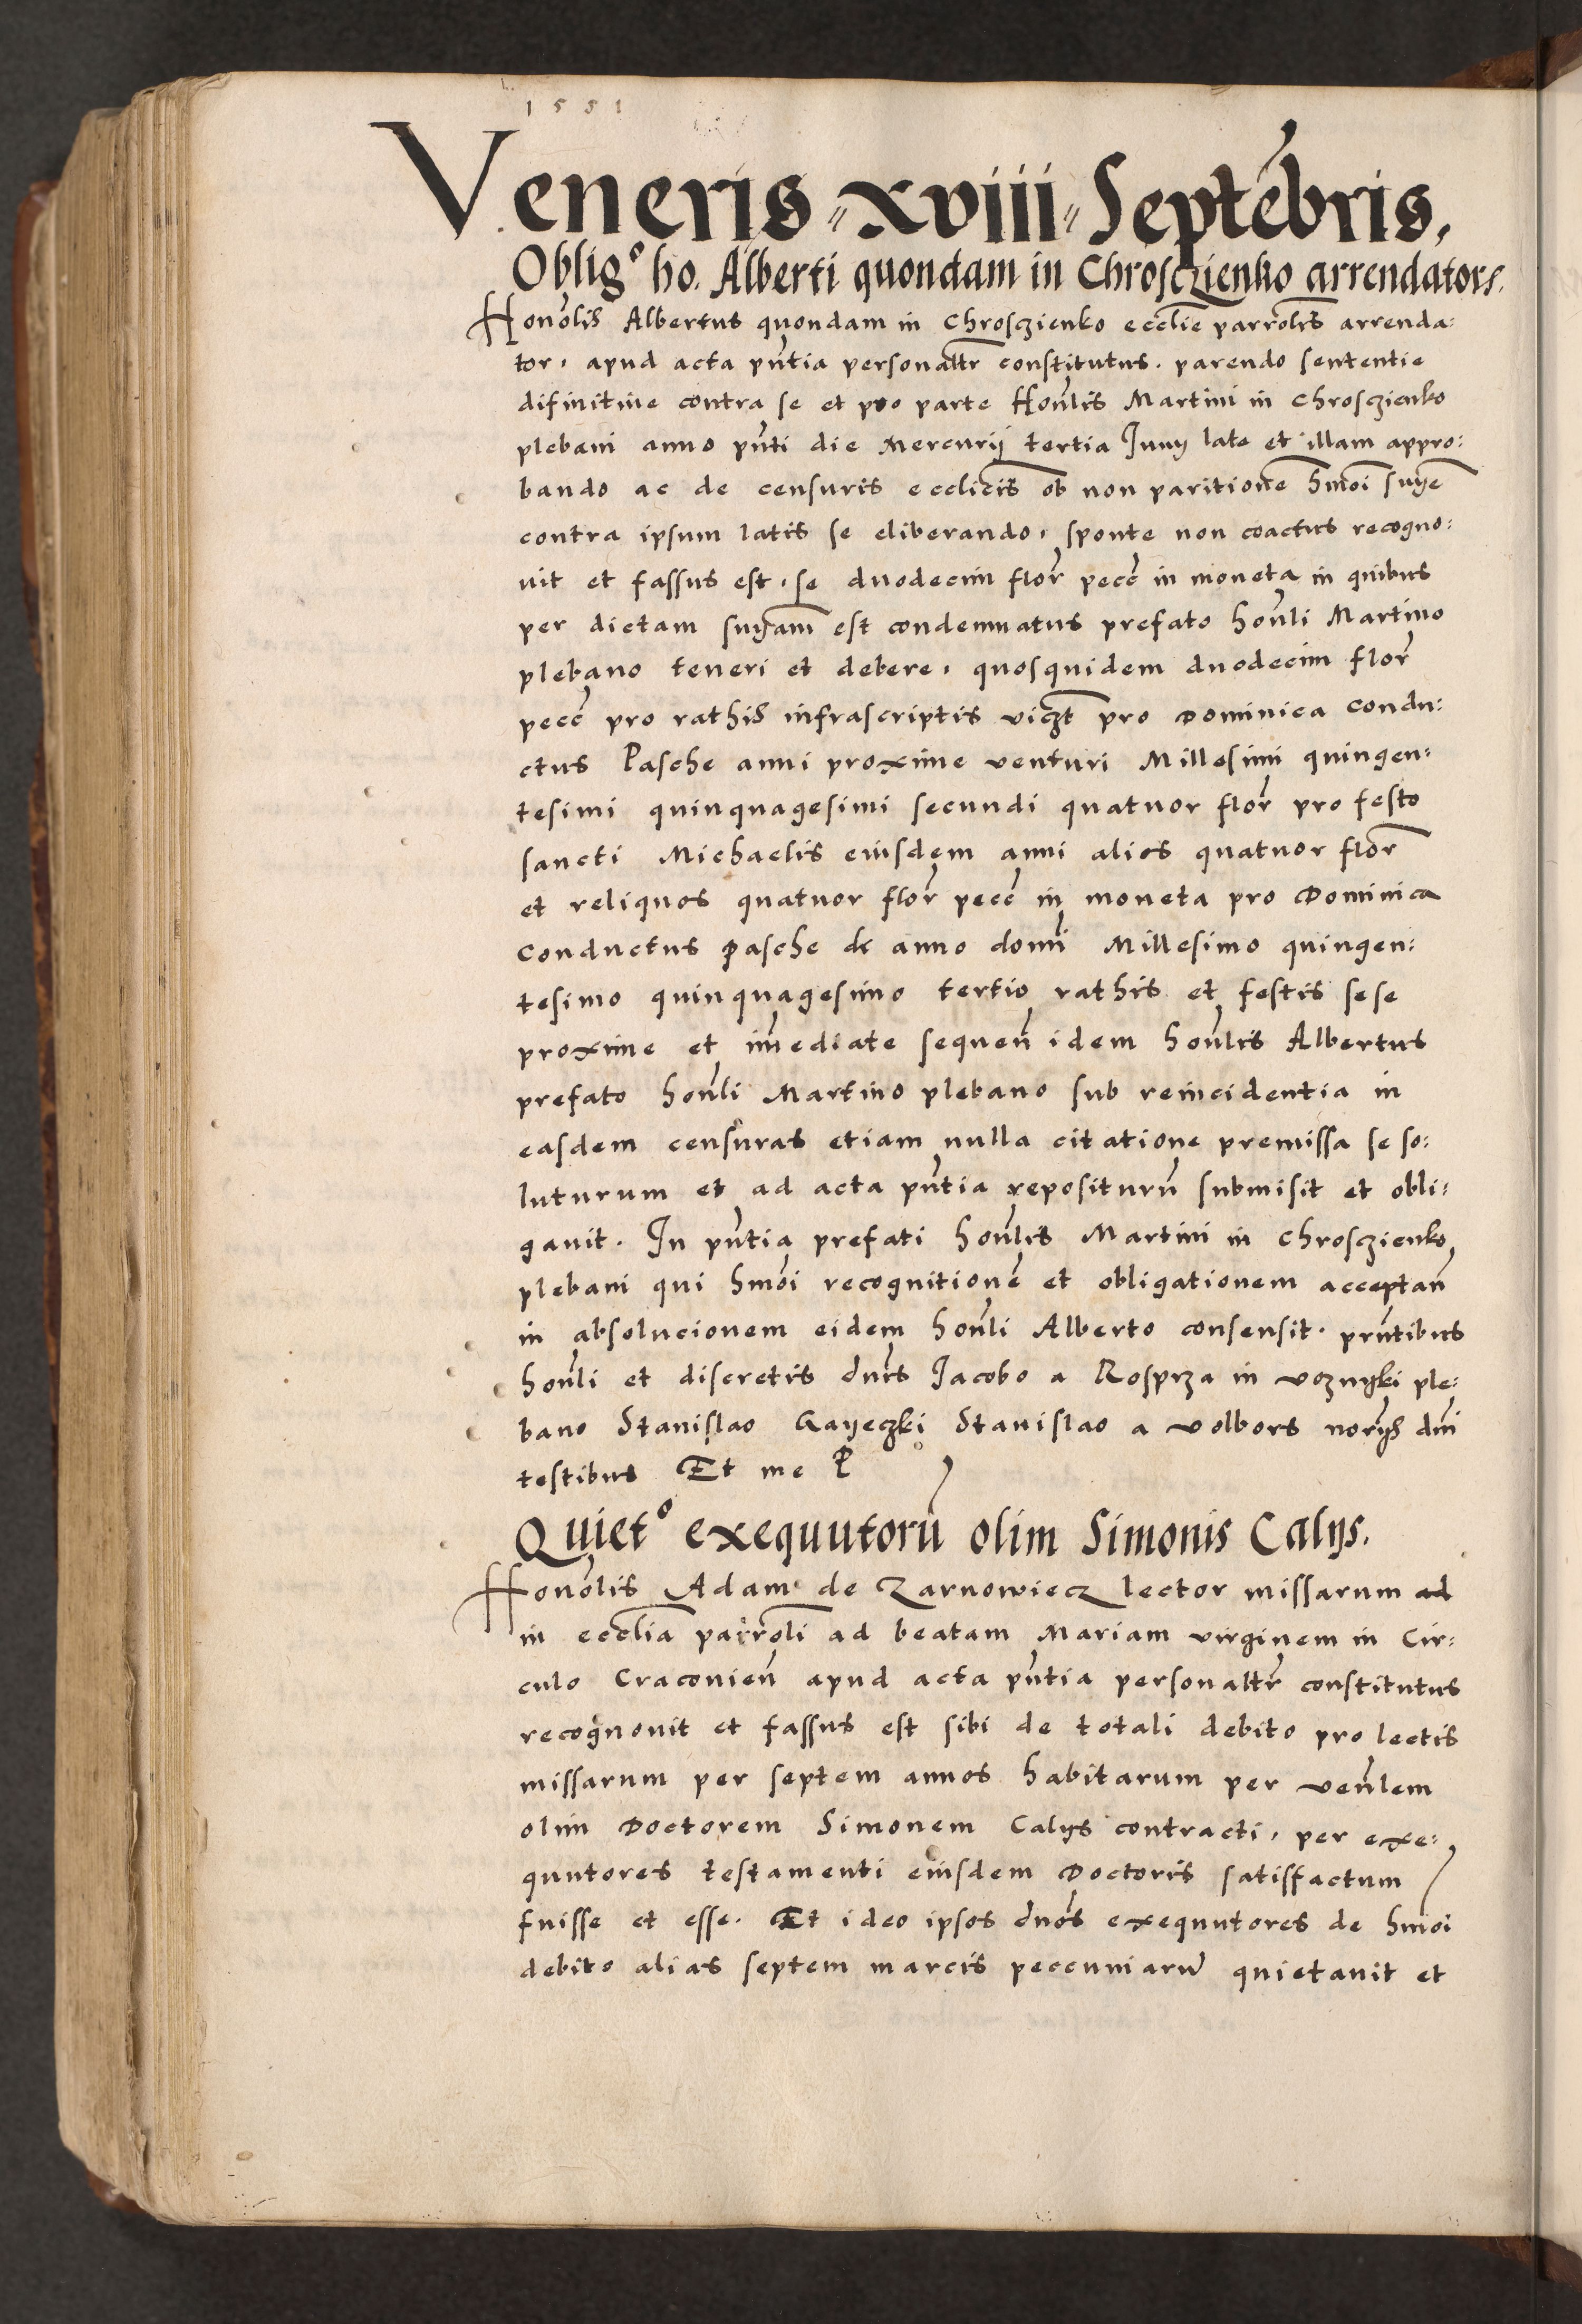 1551
Veneris xviii Septēbris,
Oblig° ho. Alberti quondam in Chrosczienko arrendatoris.
Honōlis Albertus quondam in Chrosczienko ecclīe parrōlis arrenda:
tor, apud acta pn̄tia personaltr̄ constitutus. parendo sententie
difinitiue contra se et pro parte Hon̄lis Martini in Chrosczienko
plebani anno pn̄ti die Mercurij tertia Junij late et illam appro:
bando ac de censuris ecclīcis ob non paritionē hmōi sniē
contra ipsum latis se eliberando, sponte non coactus recogno:
uit et fassus est, se duodecim flor̄ pecc̄ in moneta in quibus
per dictam sniam̄ est condemnatus prefato hon̄li Martino
plebano teneri et debere, quosquidem duodecim flor̄
pecc̄ pro rathis infrascriptis viczt̄ pro Dominica condu:
ctus Pasche anni proxime venturi Millesimi quingen:
tesimi quinquagesimi secundi quatuor flor̄ pro festo
sancti Michaelis eiusdem anni alios quatuor flor̄
et reliquos quatuor flor̄ pecc̄ in moneta pro Dominica
Conductus pasche de anno domī Millesimo quingen:
tesimo quinquagesimo tertio rathis et festis sese
proxime et im̄ediate sequen̄ idem hon̄lis Albertus
prefato hon̄li Martino plebano sub reincidentia in
easdem censuras etiam nulla citatione premissa se so:
luturum et ad acta pn̄tia repositurū submisit et obli:
gauit. In pn̄tia prefati hon̄lis Martini in Chrosczienko
plebani qui hmōi recognitionē et obligationem acceptan̄
in absolucionem eidem hon̄li Alberto consensit. prn̄tibus
hon̄li et discretis dnīs Jacobo a Rosprza in voznyki ple:
bano Stanislao Gayeczki Stanislao a volbors nor̄ijs dnī
testibus Et me P
Quiet° exequutorū olim Simonis Calijs.
Honōlis Adam de Zarnowiecz lector missarum ad
in ecclīa parrōli ad beatam Mariam virginem in Cir:
culo Cracouien̄ apud acta pn̄tia personaltr̄ constitutus
recognouit et fassus est sibi de totali debito pro lectis
missarum per septem annos habitarum per ven̄lem
olim Doctorem Simonem Calijs contracti, per exe:
quutores testamenti eiusdem Doctoris satisffactum
fuisse et esse. Et ideo ipsos dnōs exequutores de hmōi
debito alias septem marcis peccuniarū quietauit et